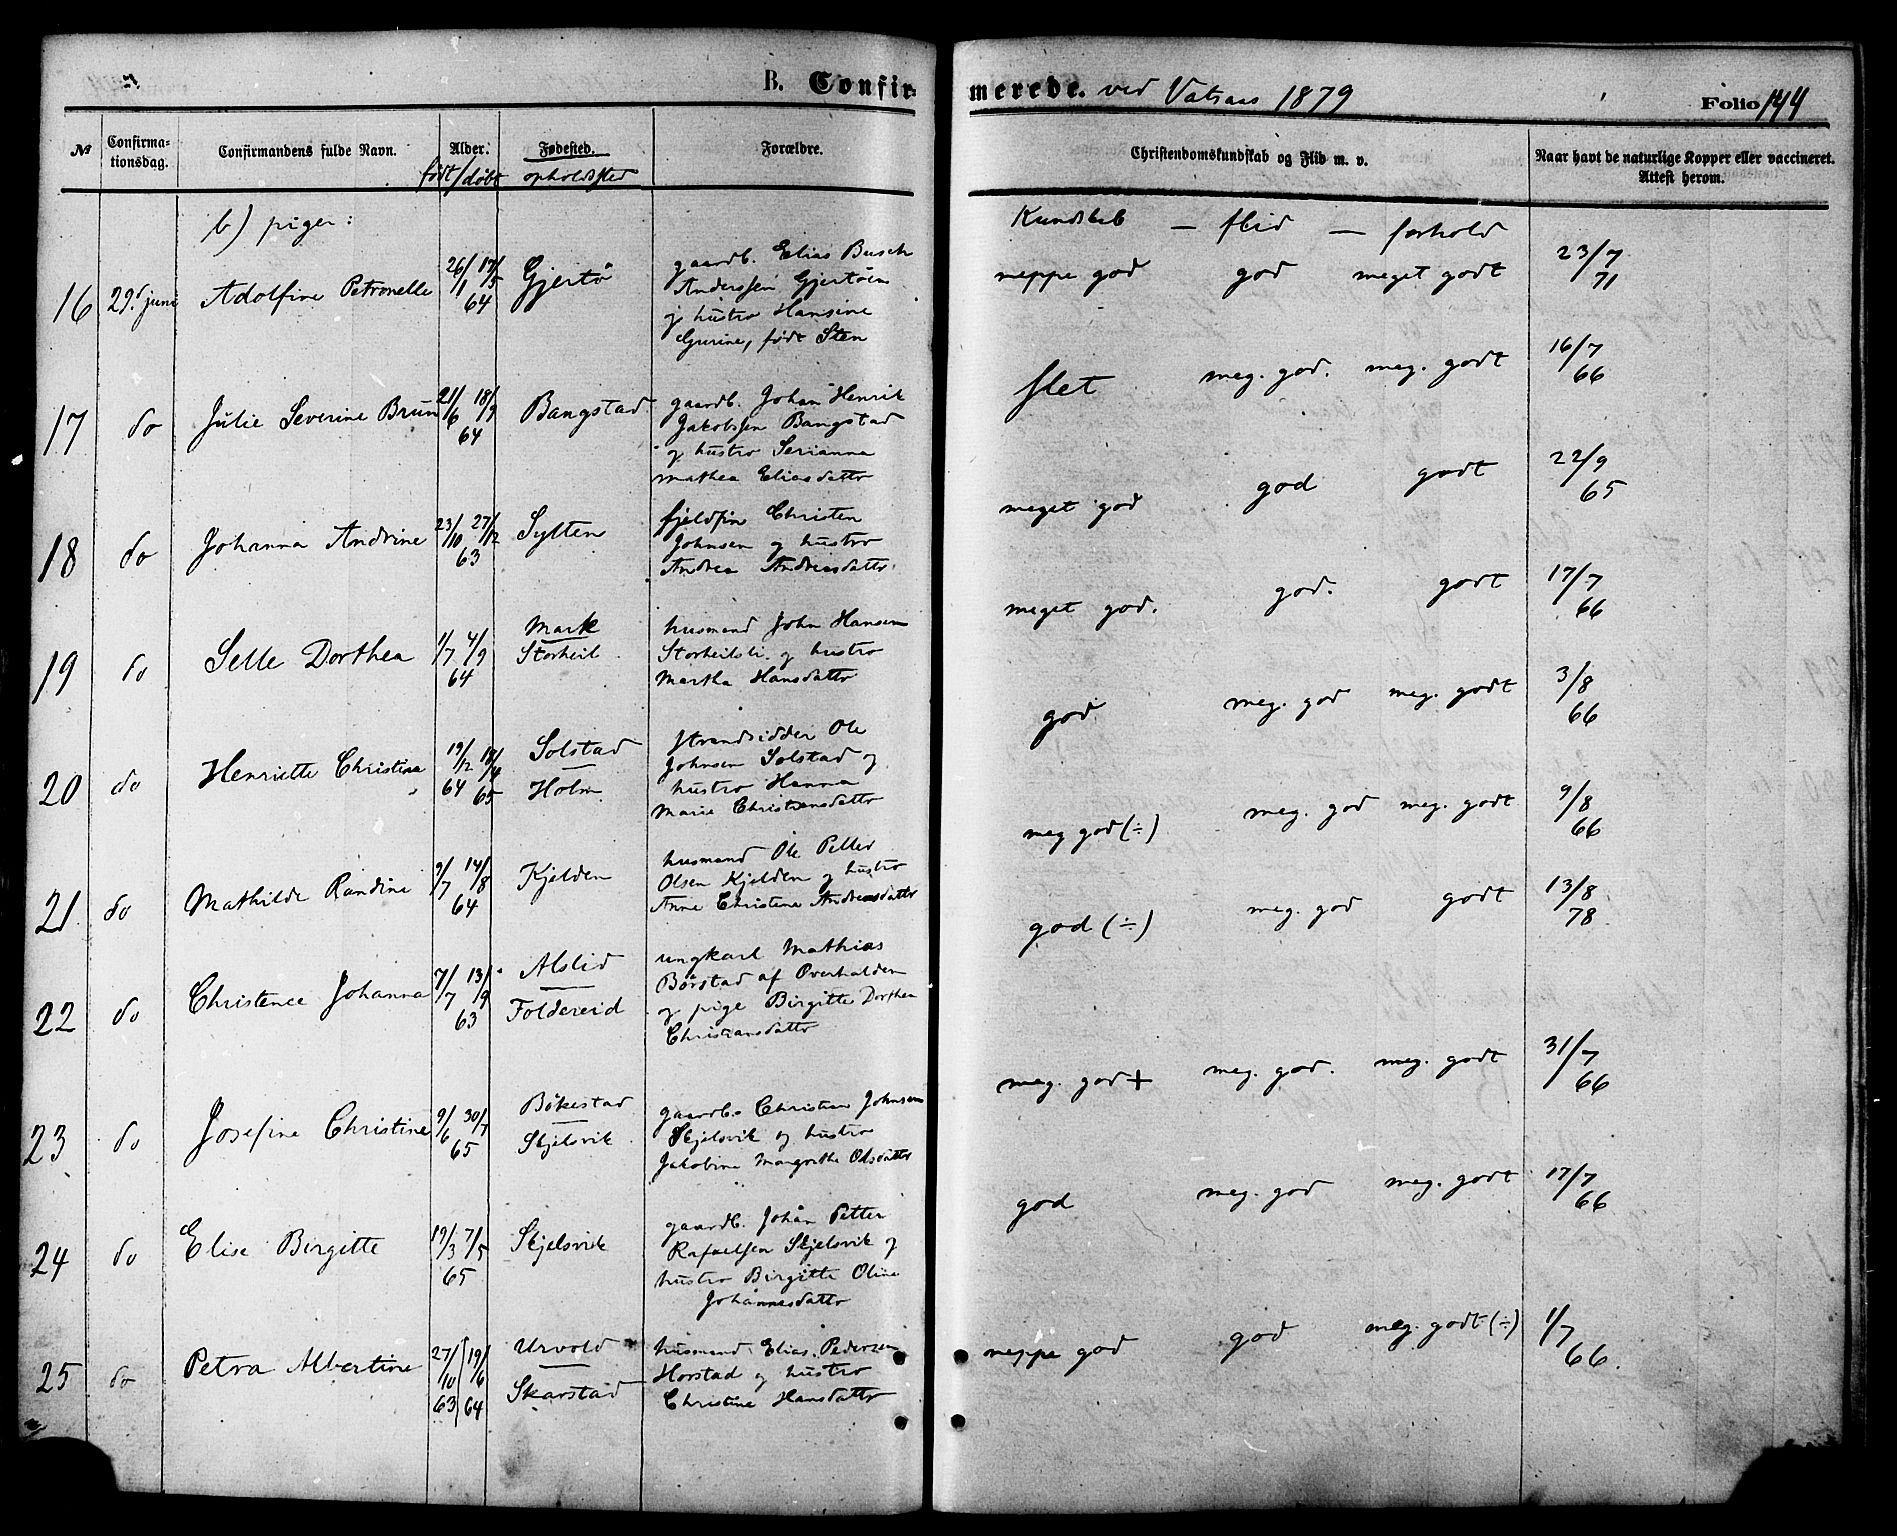 B. Confirmerede. ved Vatsaas 1879
Folio 144
№ Confirmationsdag. Confirmandens fulde Navn. Alder. født/døbt Fødested. opholdssted Forældre. Christendomskundskab og Flid m. v. Naar havt de naturlige Kopper eller vaccineret. Attest herom.
b) piger: Kundskab — flid — forhold
16 29d juni Adolfine Petronelle 26/1 17/5 64 Gjertö
gaardb. Elias Busch
Anderssen Gjertöen
og hustro Hansine
Gurine, født Sten
neppe god god meget godt 23/7 71
17 do Julie Severine Brun 21/6 18/9 64 Bangstad
gaardb. Johan Henrik
Jakobssen Bangstad
og hustro Serianna
Mathea Eliasdattr
slet meg. god. meg. godt 16/7 66
18 do Johanna Andrine 23/10 27/12 63 Sylten
fjeldfin Christen
Johnsen og hustro
Andrea Andreasdattr.
meget god god godt 22/9 65
19 do Selle Dorthea 1/7 4/9 64 Mark
Storheil.
husmand John Hansen
Storheilsli. og hustro
Martha Hansdattr
meget god. god. godt 17/7 66
20 do Henriette Christina 19/12 64 18/4 65 Solstad
Holm
Strandsidder Ole
Johnsen Solstad og
hustro Hanna
Marie Christiansdattr
god meg. god meg. godt 3/8 66
21 do Mathilde Randine 9/7 14/8 64 Kjelden
husmand Ole Petter
Olsen Kjelden og hustro
Anne Christine Andreasdattr
meg god (÷) meg. god meg. godt 9/8 66
22 do Christence Johanna 7/7 13/9 63 Alslid
Foldereid
ungkarl Mathias
Börstad af Overhalden
og pige Birgitte Dorthea
Christiansdattr
god (÷) meg. god godt 13/8 78
23 do Josefine Christine 9/6 30/7 65 Bökestad
Skjelsvik
gaardb. Christian Johnsen
Skjelsvik og hustro
Jakobine Margrethe Olsdattr
meg. god + meg. god. meg. godt 31/7 66
24 do Elise Birgitte 19/3 7/5 65 Skjelsvik
gaardb. Johan Petter
Rafaelsen Skjelsvik og
hustro Birgitte Oline
Johannesdattr
god meg. god meg. godt 17/7 66
25 do Petra Albertine 27/10 63 19/6 64 Urvold
Skarstad
husmand Elias Pedersen
Horstad og hustro
Christine Hansdattr
neppe god god meg. godt (÷) 1/7 66.